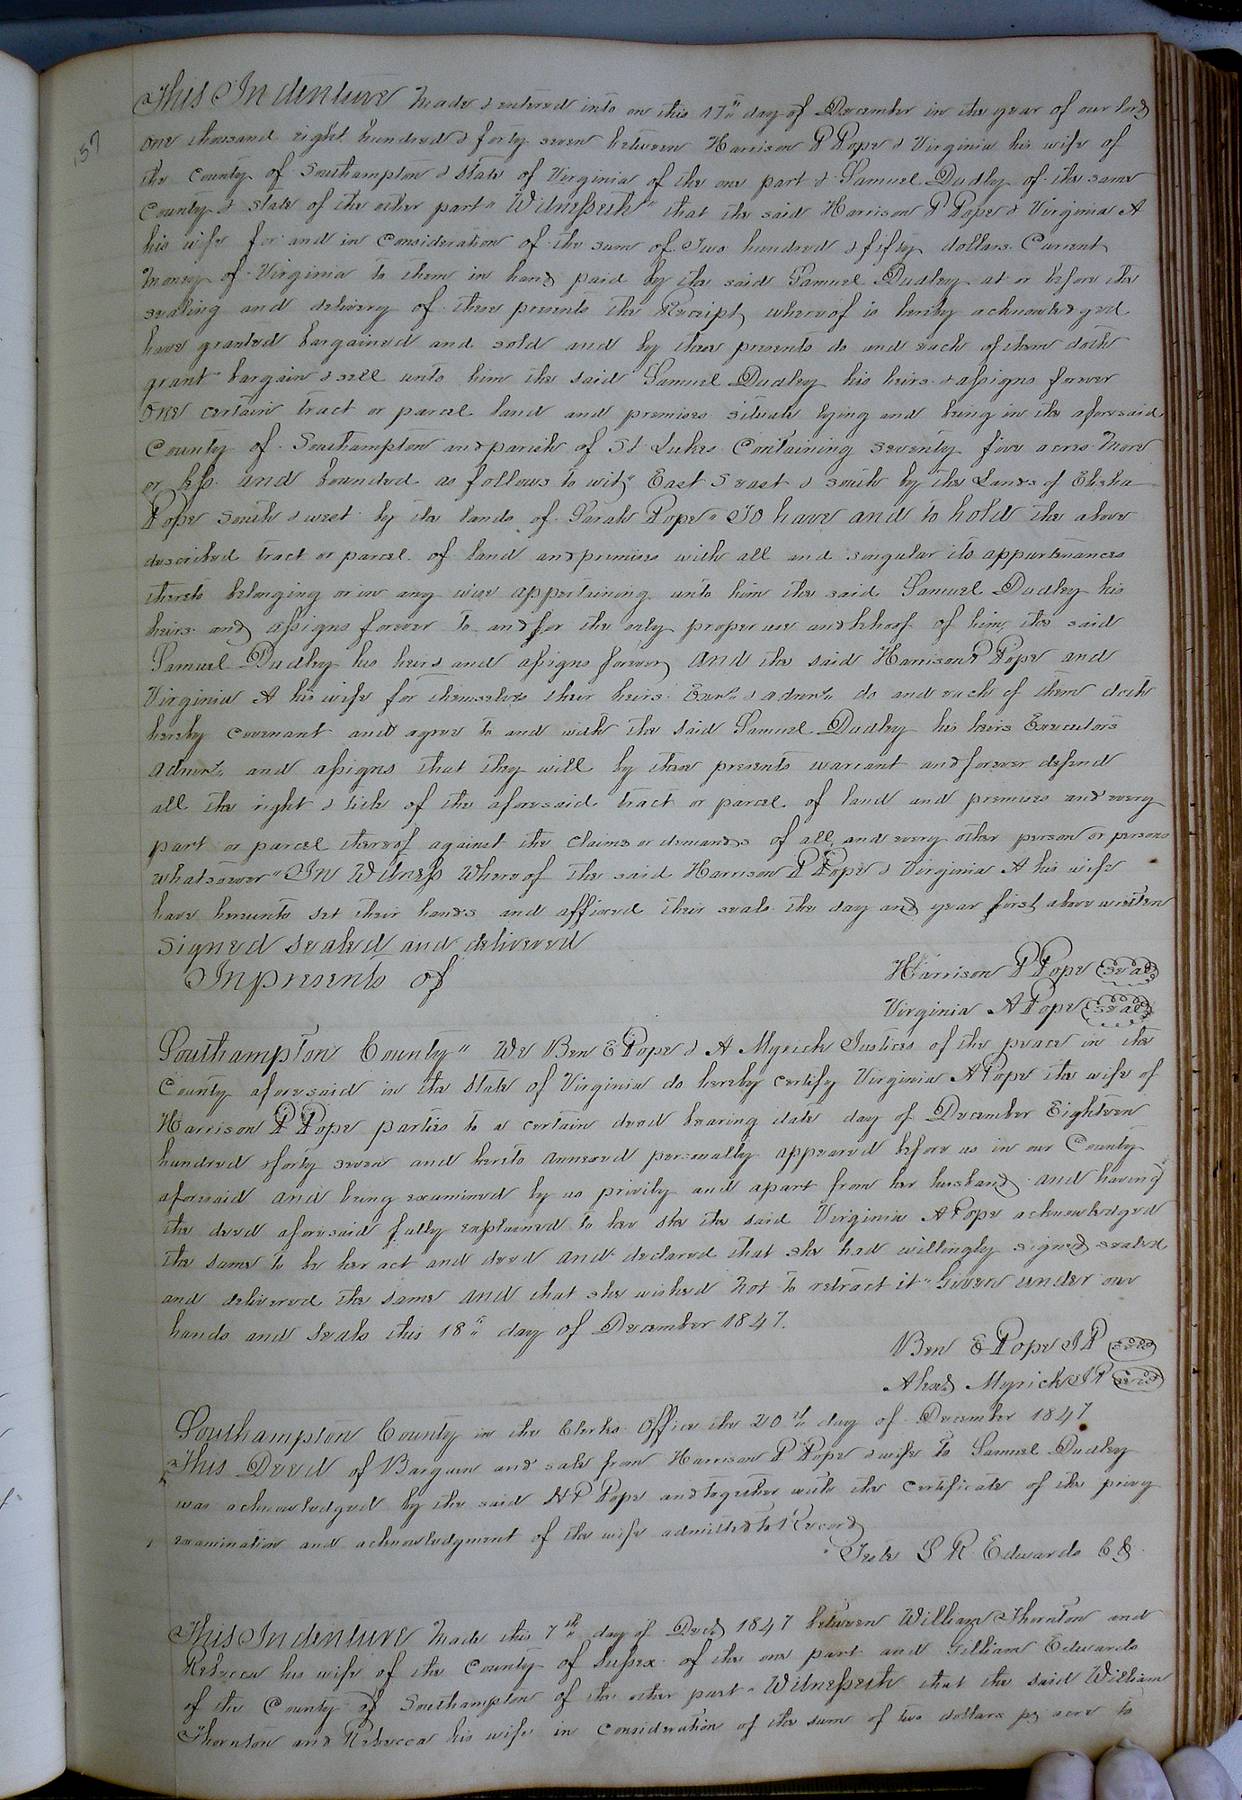 157
This Indenture Made & entered into on this 17th day of December in the year of our lord
one thousand eight hundred & forty seven between Harrison P Pope & Virginia his wife of
the County of Southampton & State of Virginia of the one part & Samuel Dudley of the same
County & State of the other part " Witnesseth " that the said Harrison P Pope & Virginia A
his wife for and in Consideration of the sum of Two hundred & fifty dollars Current
money of Virginia to them in hand paid by the said Samuel Dudley at or before the
sealing and delivery of these presents the Receipt whereof is hereby acknowledged
have granted bargained and sold and by these presents do and each of them doth
grant bargain & sell unto him the said Samuel Dudley his heirs & assigns forever
One certain tract or parcel land and premises situate lying and being in the aforesaid
County of Southampton and parish of St Lukes Containing seventy five acres More
or less and bounded as follows to wit " East S east & south by the Lands of Elisha
Pope South & west by the lands of Sarah Pope " To have and to hold the above
described tract or parcel of land and premises with all and singular its appurtenances
thereto belonging or in any wise appertaining unto him the said Samuel Dudley his
heirs and assigns forever to and for the only proper use and behoof of him the said
Samuel Dudley his heirs and assigns forever And the said Harrison P Pope and
Virginia A his wife for themselves their heirs Exors & admrs do and each of them doth
hereby covenant and agree to and with the said Samuel Dudley his heirs Executors
Admrs and assigns that they will by these presents warrant and forever defend
all the right & title of the aforesaid tract or parcel of land and premises and every
part or parcel thereof against the claims or demands of all and every other person or persons
whatsoever " In Witness Whereof the said Harrison P Pope & Virginia A his wife
have hereunto set their hands and affixed their seals the day and year first above written
Signed sealed and delivered
In presents of
Harrison P Pope (seal)
Virginia A Pope (seal)
Southampton County " We Ben E Pope & A Myrick Justices of the peace in the
County aforesaid in the State of Virginia do hereby certify Virginia A Pope the wife of
Harrison P Pope parties to a certain deed bearing date day of December Eighteen
hundred & forty seven and hereto annexed personally appeared before us in our County
aforesaid and being examined by us privily and apart from her husband and having
the deed aforesaid fully explained to her she the said Virginia A Pope acknowledged
the same to be her act and deed and declared that she had willingly signed sealed
and delivered the same and that she wished not to retract it " Given under our
hands and seals this 18th day of December 1847.
Ben E Pope JP (seal)
Alexd Myrick JP (seal)
Southampton County in the Clerks Office the 20th day of December 1847
This Deed of Bargain and sale from Harrison P Pope & wife to Samuel Dudley
was acknowledged by the said H P Pope and together with the certificate of the privy
examination and acknowledgment of the wife admitted to Record
Teste L R Edwards CC
This Indenture Made this 7th day of Decr 1847 between William Thornton and
Rebecca his wife of the County of Sussex of the one part and William Edwards
of the County of Southampton of the other part " Witnesseth that the said William
Thornton and Rebecca his wife in Consideration of the sum of two dollars pr acre to